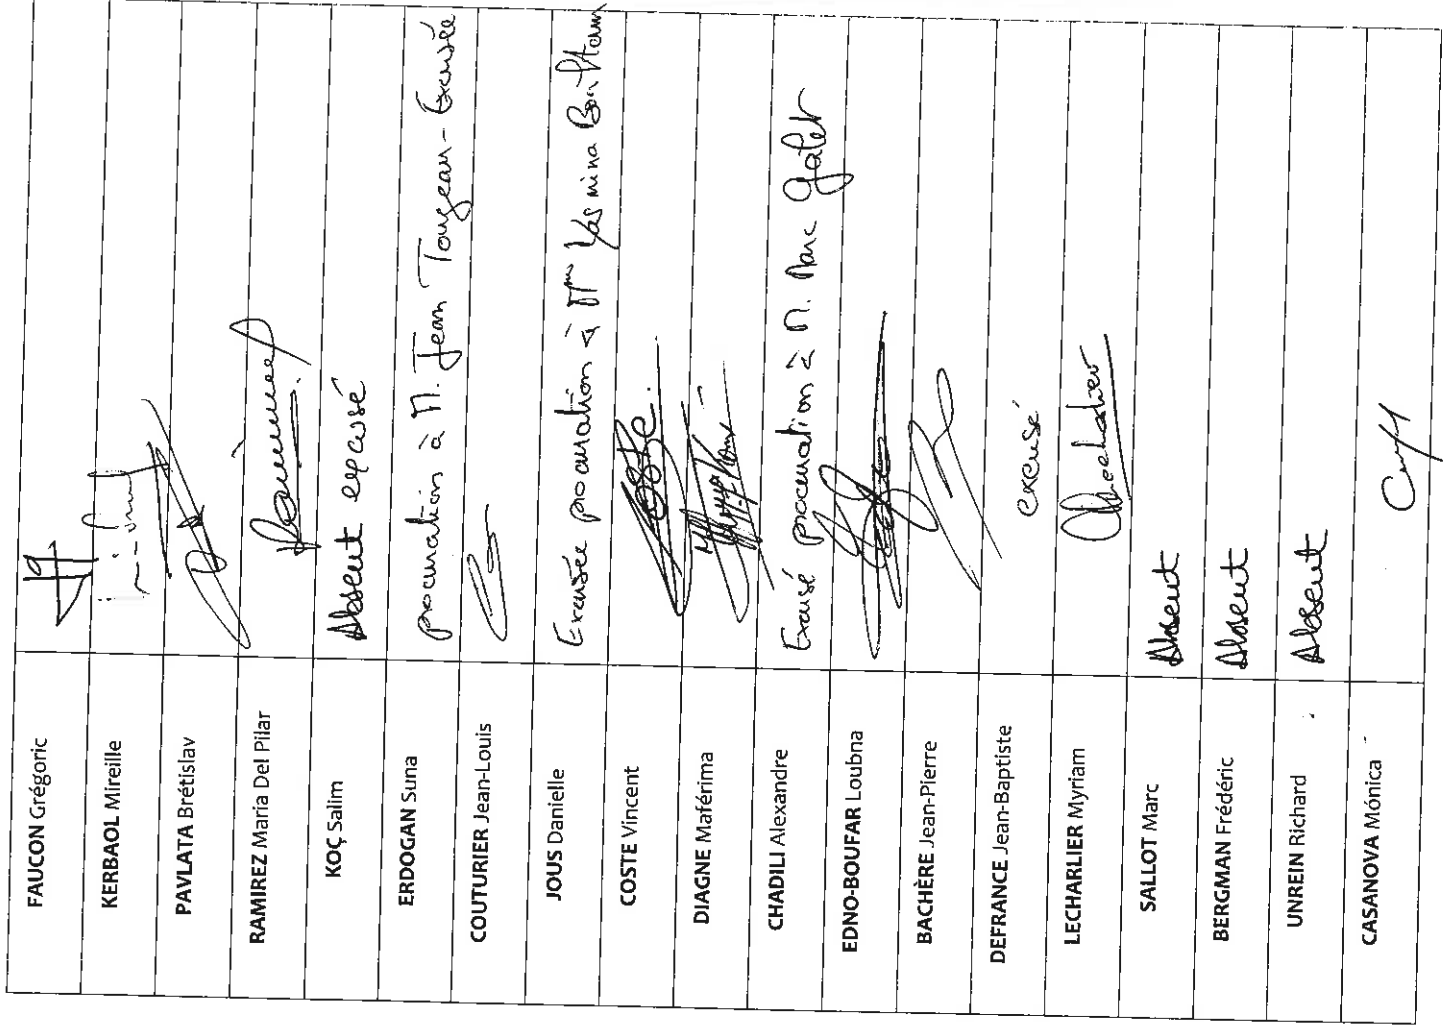 FAUCON Grégoric
KERBAOL Mireille
PAVLATA Brétislav
RAMIREZ Maria Del Pilar
KOÇ Salim Absent excusé
ERDOGAN Suna procuration à M. Jean - Excusée
COUTURIER Jean-Louis
JOUS Danielle Excusée procuration à Mme Yasmina
COSTE Vincent Coste
DIAGNE Maférima
CHADILI Alexandre Excusé procuration à M. Marc
EDNO-BOUFAR Loubna
BACHÈRE Jean-Pierre
DEFRANCE Jean-Baptiste excusé
LECHARLIER Myriam
SALLOT Marc Absent
BERGMAN Frédéric Absent
UNREIN Richard Absent
CASANOVA Mónica